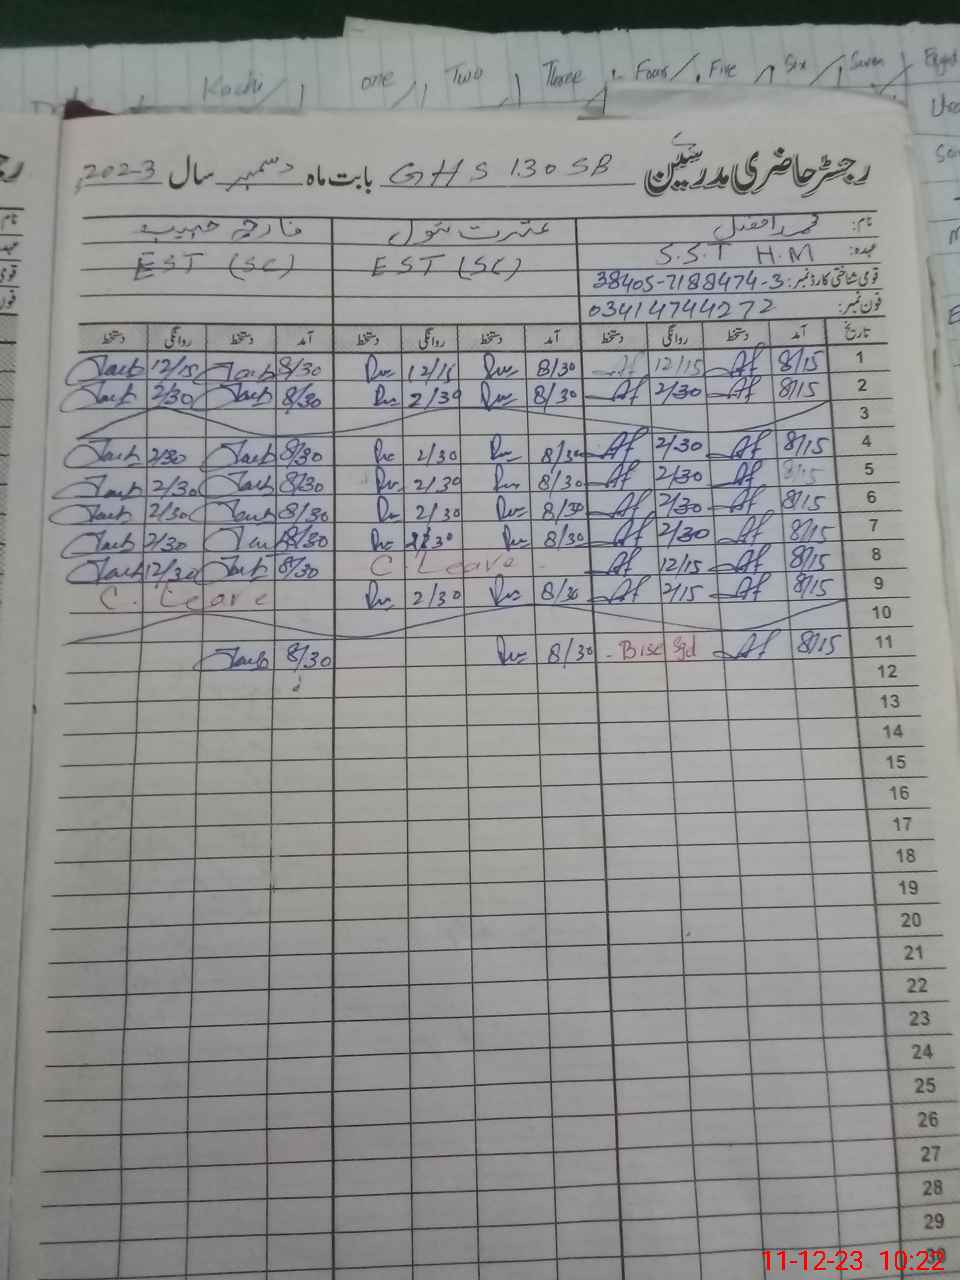 Kachi / one / Two / Three / Four / Five / Six / Seven / Eight
رجسٹر حاضری مدرسین GHS 130 SB بابت ماہ دسمبر سال 2023
نام: محمد افضل عترت بتول فارحہ حبیب
عہدہ: S.S.T H.M EST (SC) EST (SC)
قومی شناختی کارڈ نمبر: 38405-7188474-3
فون نمبر: 03414744272
تاریخ آمد دستخط روانگی دستخط آمد دستخط روانگی دستخط آمد دستخط روانگی دستخط
1 8/15 12/15 8/30 12/15 8/30 12/15
2 8/15 2/30 8/30 2/30 8/30 2/30
3
4 8/15 2/30 8/30 2/30 8/30 2/30
5 8/15 2/30 8/30 2/30 8/30 2/30
6 8/15 2/30 8/30 2/30 8/30 2/30
7 8/15 2/30 8/30 2/30 8/30 2/30
8 8/15 12/15 C Leave 8/30 12/30
9 8/15 2/15 8/30 2/30 C. Leave
10
11 8/15 Bise Sgd 8/30 8/30
12
13
14
15
16
17
18
19
20
21
22
23
24
25
26
27
28
29
30
11-12-23 10:22